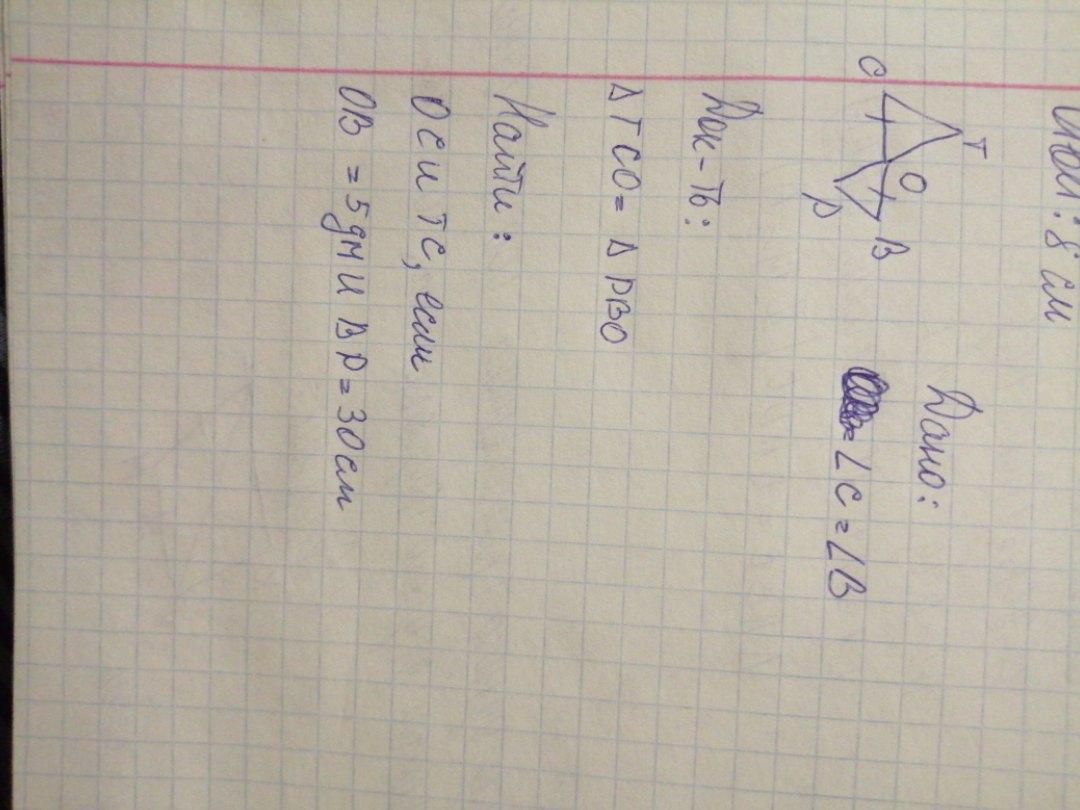 8 см
T
O
C
B
P
Дано:
∠C = ∠B
Док-ть:
Δ TCO = Δ PBO
Найти:
OC и TC, если
OB = 5дм и BP = 30см